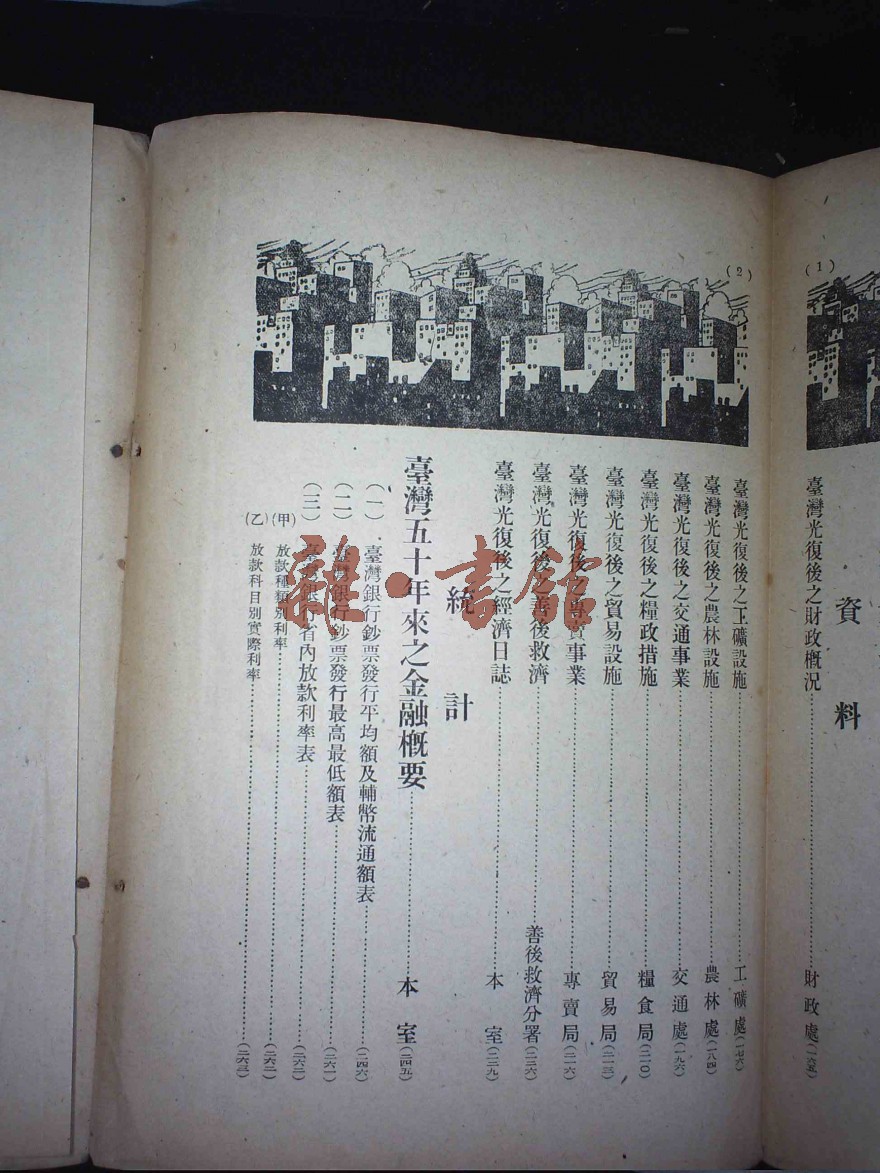 (1)
資料
臺灣光復後之財政概況……財政處(一六五)
(2)
臺灣光復後之工礦設施……工礦處(一七六)
臺灣光復後之農林設施……農林處(一八四)
臺灣光復後之交通事業……交通處(一九六)
臺灣光復後之糧政措施……糧食局(二一〇)
臺灣光復後之貿易設施……貿易局(二一三)
臺灣光復後之專賣事業……專賣局(二二六)
臺灣光復後之善後救濟……善後救濟分署(二三六)
臺灣光復後之經濟日誌……本室(二三九)
統計
臺灣五十年來之金融概要……本室(二四五)
(一)臺灣銀行鈔票發行平均額及輔幣流通額表……(二四六)
(二)臺灣銀行鈔票發行最高最低額表……(二六一)
(三)臺灣銀行省內放款利率表……(二六二)
(甲)放款種類別利率……(二六二)
(乙)放款科目別實際利率……(二六三)
雜·書館